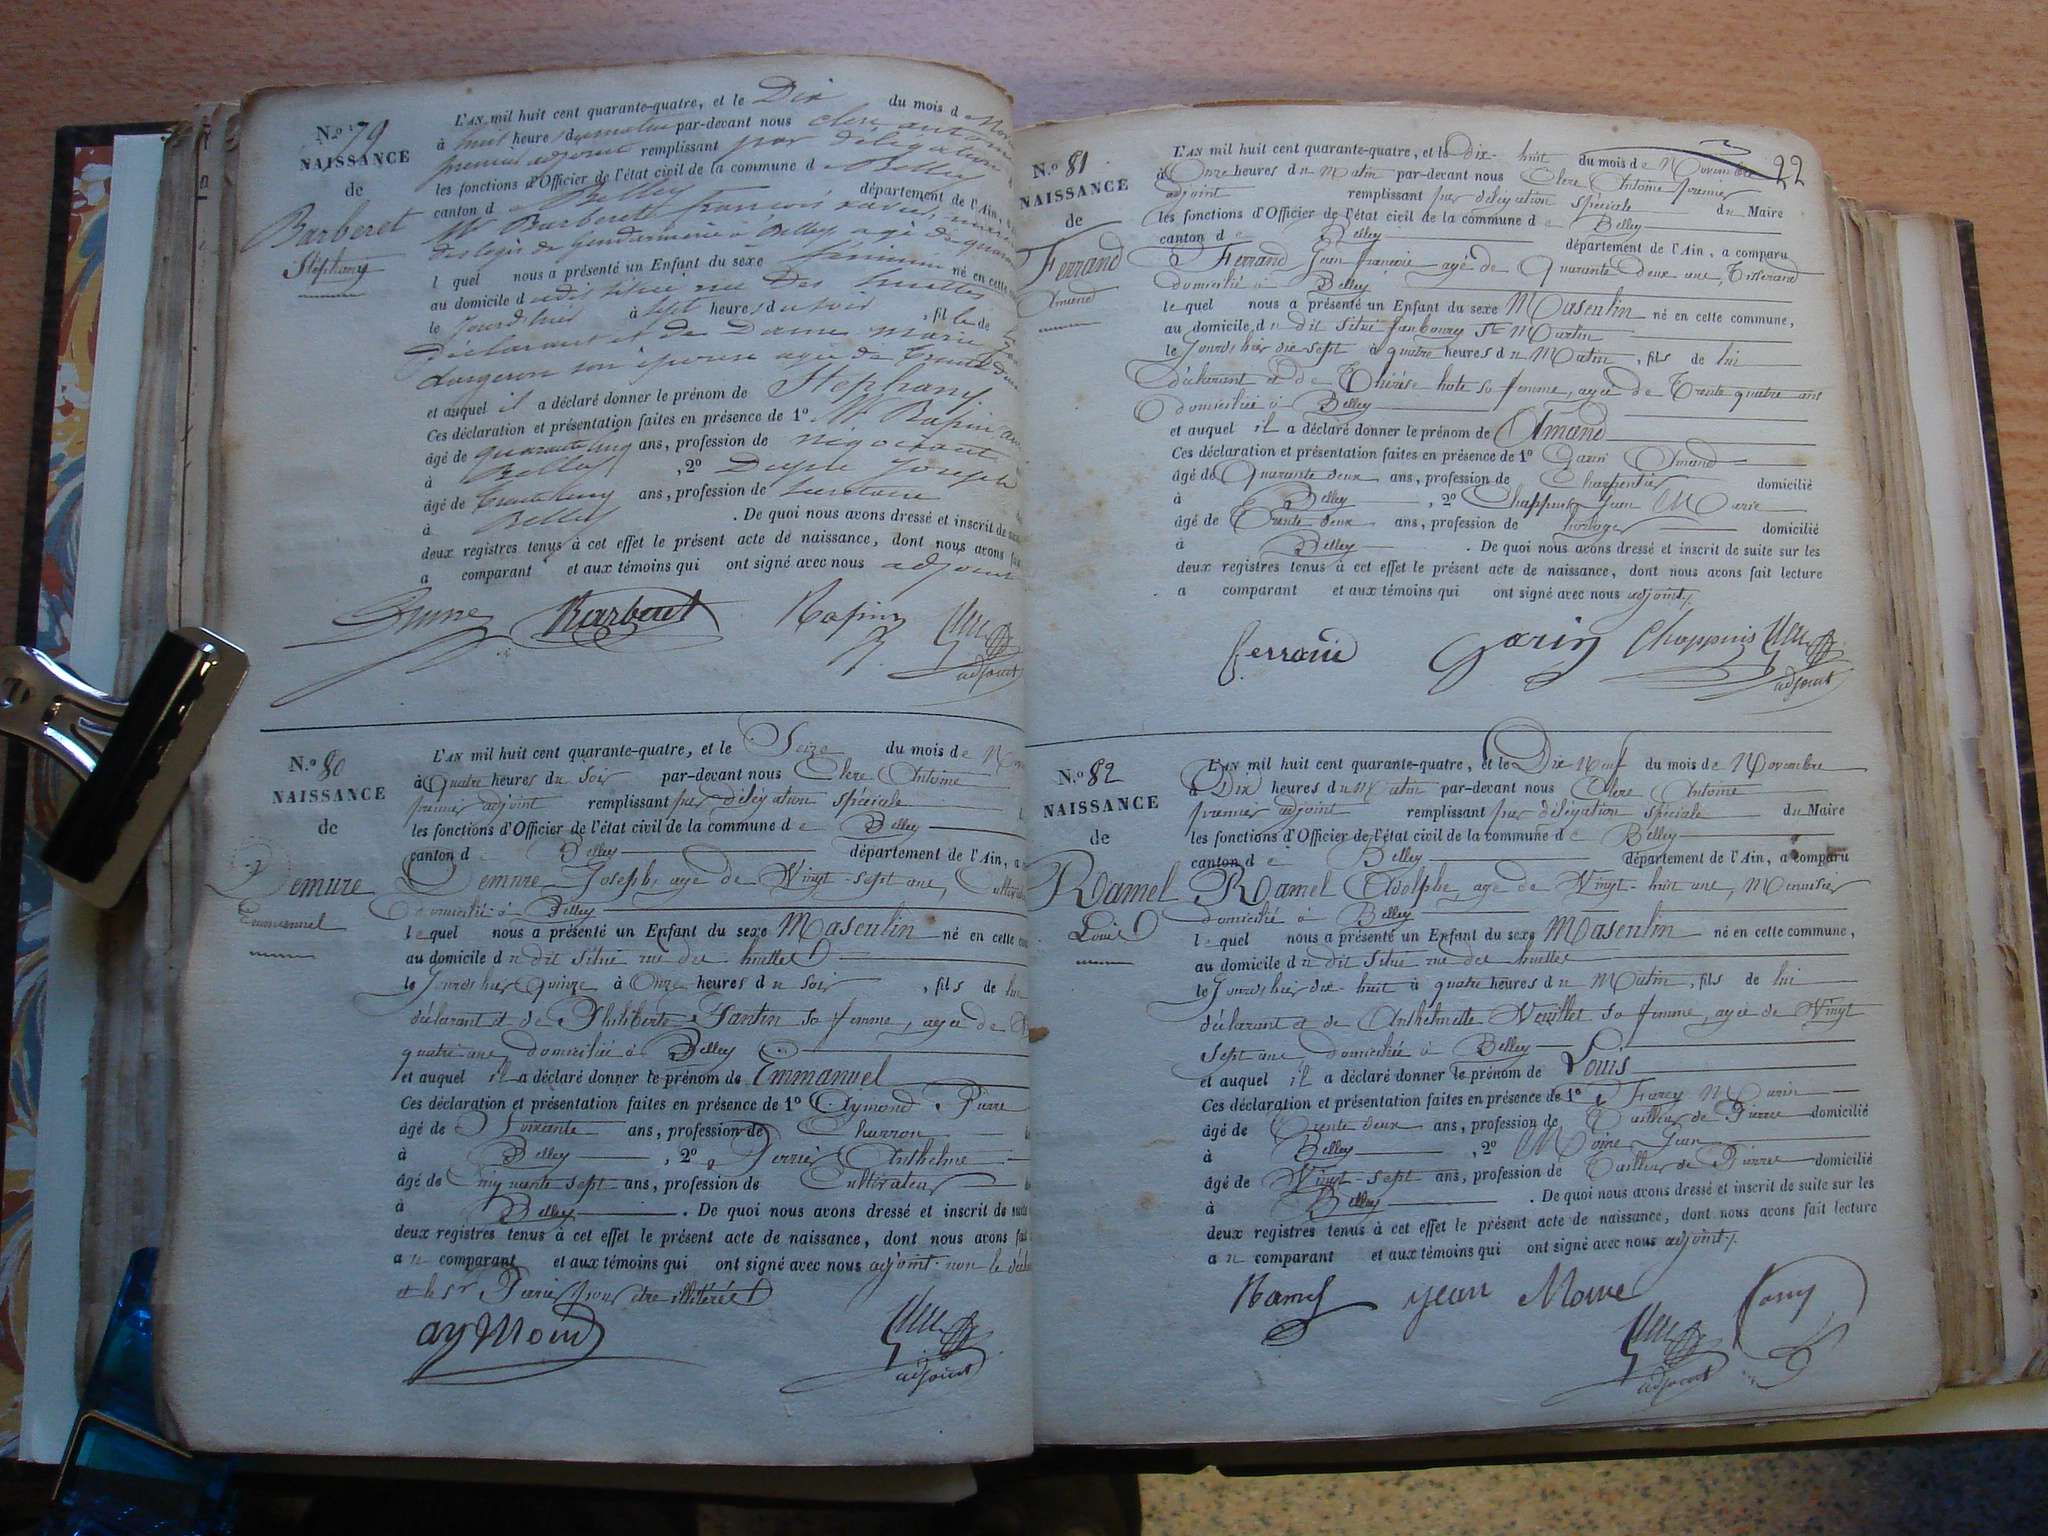 N.º 79
NAISSANCE
de
Barberet
Stéphany
L'AN mil huit cent quarante-quatre, et le Dix du mois d
à huit heure du matin par-devant nous Clerc antoine
premier adjoint remplissant par délégation
les fonctions d'Officier de l'état civil de la commune d e Belley
canton d e Belley département de l'Ain, a
Mr Barberet françois xavier,
des logis de Gendarmerie à Belley agé de
l quel nous a présenté un Enfant du sexe féminin né en cette
au domicile d situé rue des huettes
le Jourd'hier à sept heures du soir, fille de
déclarant et de Dame marie
son épouse agée de Trente
et auquel il a déclaré donner le prénom de Stéphany.
Ces déclaration et présentation faites en présence de 1º Mr Rapin
âgé de quarante cinq ans, profession de négociant
à Belley, 2º Joseph
âgé de ans, profession de
à Belley. De quoi nous avons dressé et inscrit de
deux registres tenus à cet effet le présent acte de naissance, dont nous avons fait
a comparant et aux témoins qui ont signé avec nous adjoint
Barberet Rapin
adjoint
N.º 80
NAISSANCE
de
Demure
Emmanuel
L'AN mil huit cent quarante-quatre, et le Seize du mois de
à Quatre heures du soir par-devant nous Clerc Antoine
premier adjoint remplissant par délégation spéciale
les fonctions d'Officier de l'état civil de la commune d e Belley
canton d e Belley département de l'Ain, a
Demure Joseph, agé de Vingt-sept ans,
domicilié à Belley
le quel nous a présenté un Enfant du sexe Masculin né en cette
au domicile du dit situé rue des huettes
le Jourdhier Quinze à Onze heures du soir, fils de lui
déclarant et de Philiberte Jantin sa femme, agée de
quatre ans, domiciliée à Belley
et auquel il a déclaré donner le prénom de Emmanuel
Ces déclaration et présentation faites en présence de 1º Aymond Pierre
âgé de Soixante ans, profession de Charron
à Belley, 2º Perrier Anthelme
âgé de Cinquante sept ans, profession de Cultivateur
à Belley. De quoi nous avons dressé et inscrit de suite
deux registres tenus à cet effet le présent acte de naissance, dont nous avons fait
a u comparant et aux témoins qui ont signé avec nous adjoint. non le
et le sr Perrier pour être illitérés
aymond
adjoint
22
N.º 81
NAISSANCE
de
Ferrand
Amand
L'AN mil huit cent quarante-quatre, et le Dix-huit du mois de Novembre
à Onze heures du Matin par-devant nous Clerc Antoine premier
adjoint remplissant par délégation spéciale du Maire
les fonctions d'Officier de l'état civil de la commune d e Belley
canton d e Belley département de l'Ain, a comparu
Ferrand Jean françois agé de Quarante deux ans, Tisserand
domicilié à Belley
le quel nous a présenté un Enfant du sexe Masculin né en cette commune,
au domicile du dit situé faubourg St Martin
le Jourdhier dix-sept à quatre heures du Matin, fils de lui
déclarant et de Thérèse hote sa femme, agée de Trente quatre ans
domiciliée à Belley
et auquel il a déclaré donner le prénom de Amand
Ces déclaration et présentation faites en présence de 1º Garin Amand
âgé de Quarante deux ans, profession de Charpentier domicilié
à Belley, 2º Chappuis Jean Marie
âgé de Trente deux ans, profession de horloger domicilié
à Belley. De quoi nous avons dressé et inscrit de suite sur les
deux registres tenus à cet effet le présent acte de naissance, dont nous avons fait lecture
a comparant et aux témoins qui ont signé avec nous adjoint
ferrand Garin Chappuis
adjoint
N.º 82
NAISSANCE
de
Ramel
Louis
L'AN mil huit cent quarante-quatre, et le Dix Neuf du mois de Novembre
à Dix heures du Matin par-devant nous Clerc Antoine
premier adjoint remplissant par délégation spéciale du Maire
les fonctions d'Officier de l'état civil de la commune d e Belley
canton d e Belley département de l'Ain, a comparu
Ramel Adolphe, agé de Vingt-huit ans, Menuisier
domicilié à Belley
le quel nous a présenté un Enfant du sexe Masculin né en cette commune,
au domicile du dit situé rue des huettes
le Jourdhier dix-huit à quatre heures du Matin, fils de lui
déclarant et de Anthelmette Vuillet sa femme, agée de Vingt
sept ans domiciliée à Belley
et auquel il a déclaré donner le prénom de Louis
Ces déclaration et présentation faites en présence de 1º Farcy Marin
âgé de Trente deux ans, profession de Tailleur de Pierre domicilié
à Belley, 2º Moine Jean
âgé de Vingt-sept ans, profession de Tailleur de Pierre domicilié
à Belley. De quoi nous avons dressé et inscrit de suite sur les
deux registres tenus à cet effet le présent acte de naissance, dont nous avons fait lecture
a u comparant et aux témoins qui ont signé avec nous adjoint
Ramel jean Moine
adjoint